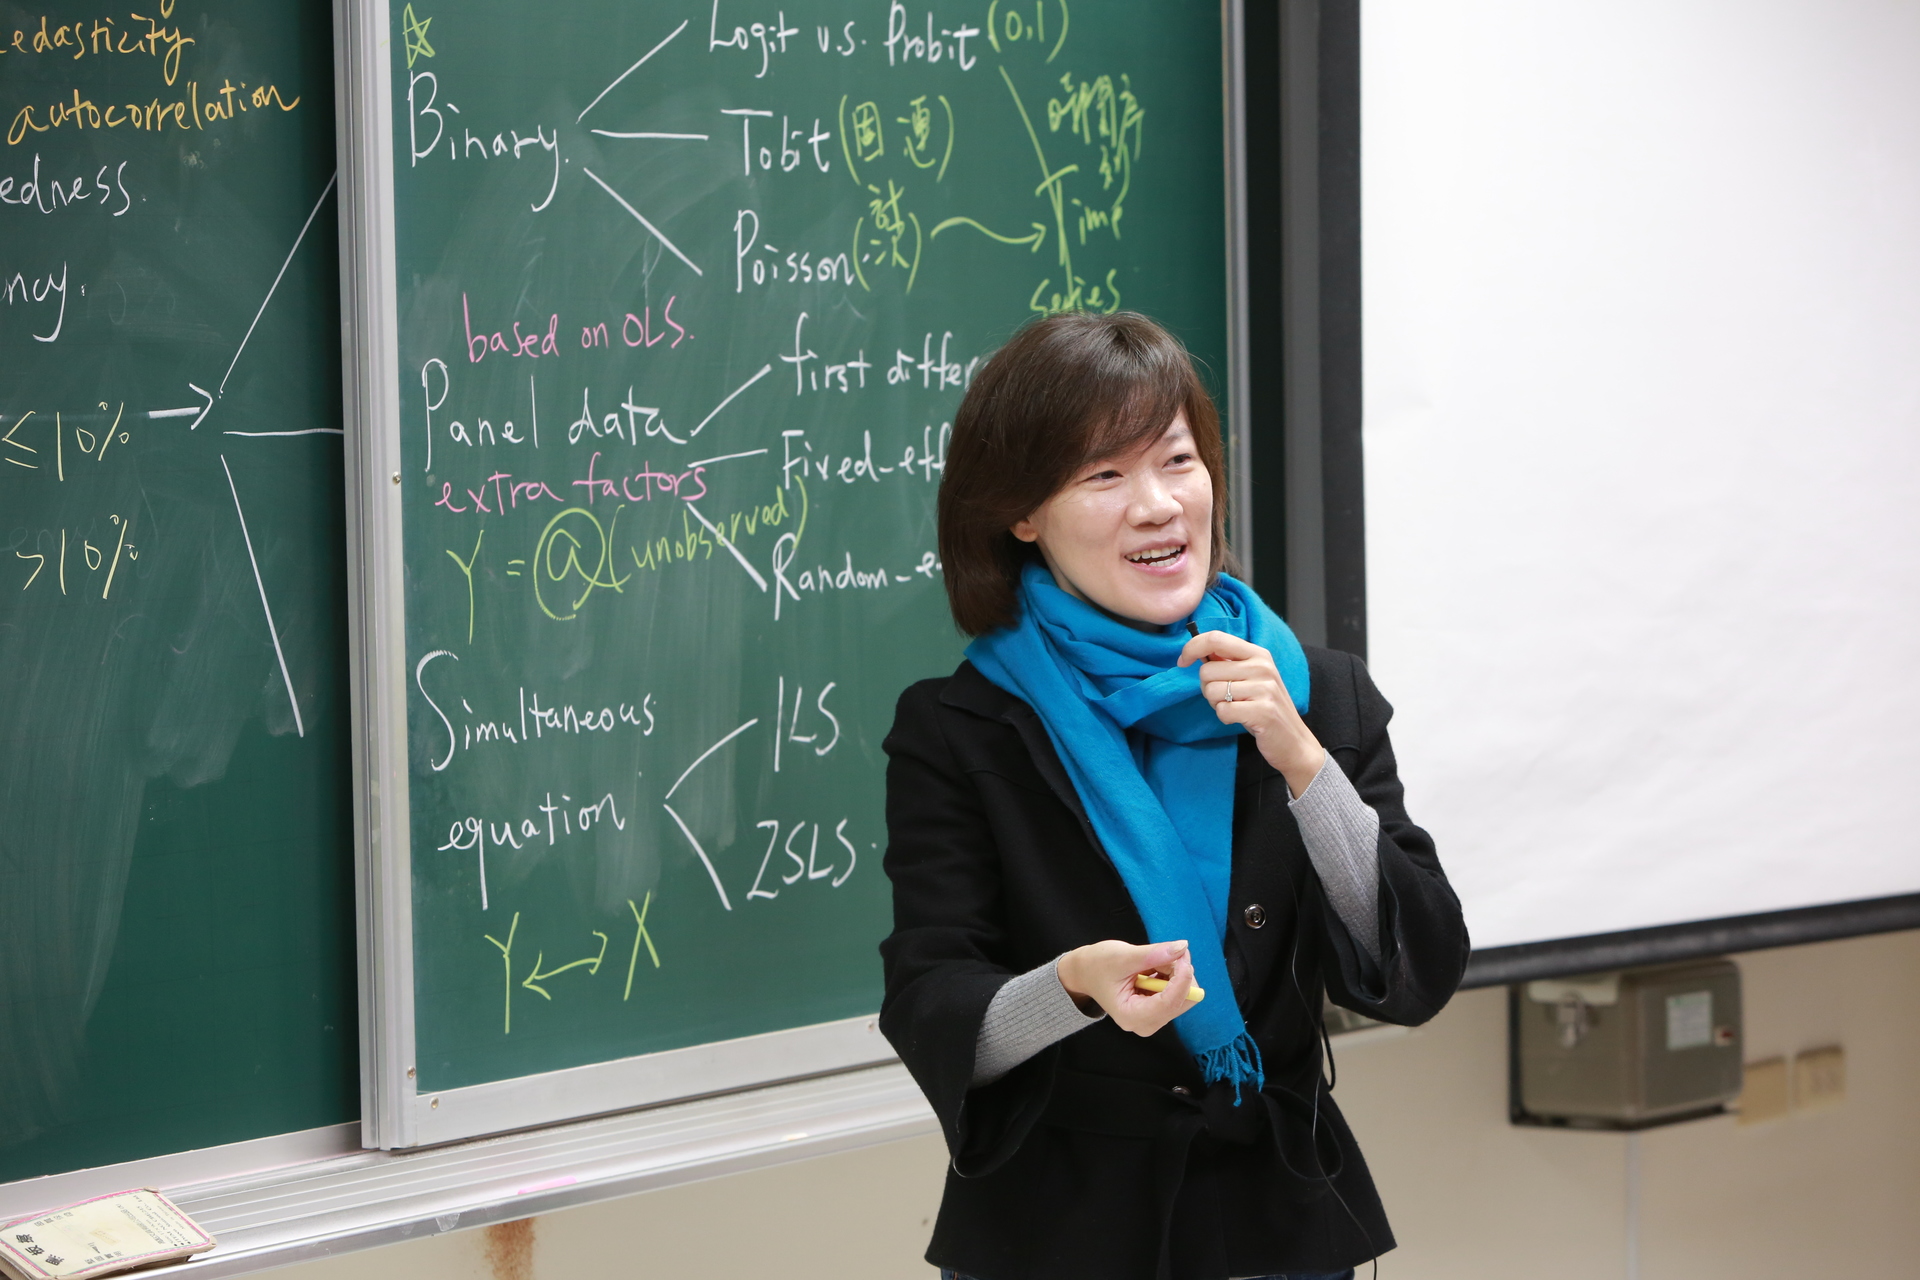 edasticity
autocorrelation
edness.
ncy.
≤10%
>10%
Binary.
Logit v.s. Probit (0,1)
Tobit (固連)
Poisson (計次)
時間序列
Time
series
based on OLS.
Panel data
first differ
Fixed-eff
Random-e
extra factors
Y = a (unobserved)
Simultaneous
equation
ILS
2SLS.
Y ↔ X